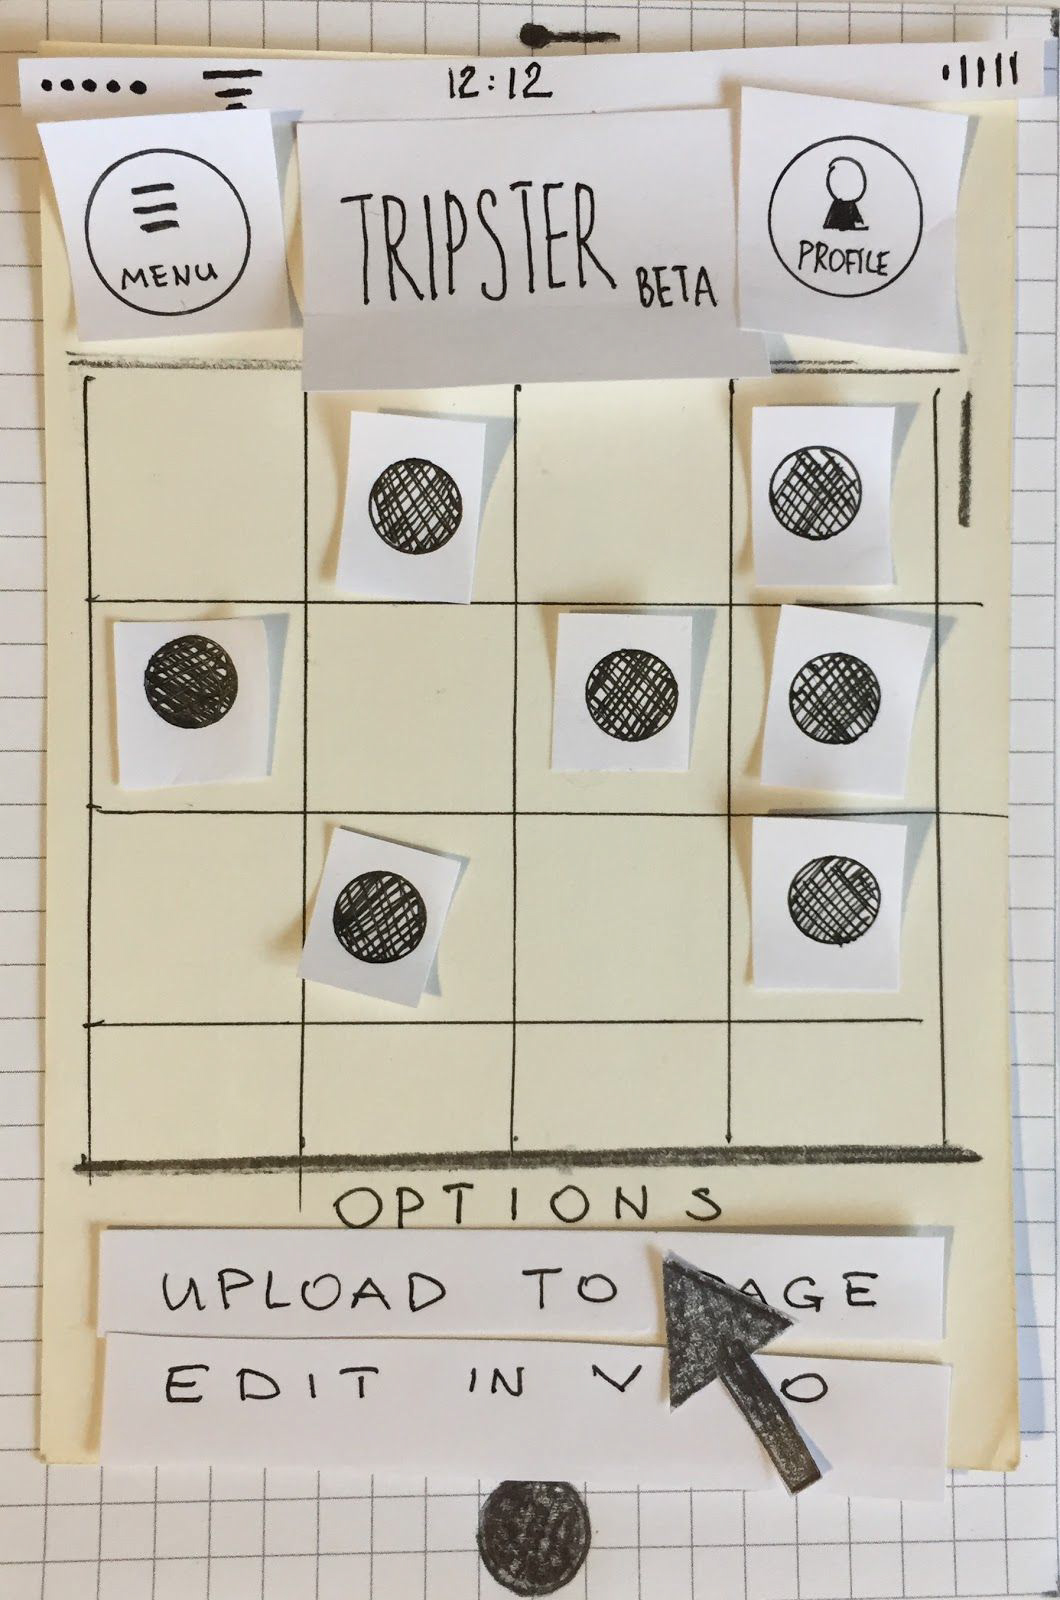 12:12
MENU
TRIPSTER BETA
PROFILE
OPTIONS
UPLOAD TO PAGE
EDIT IN